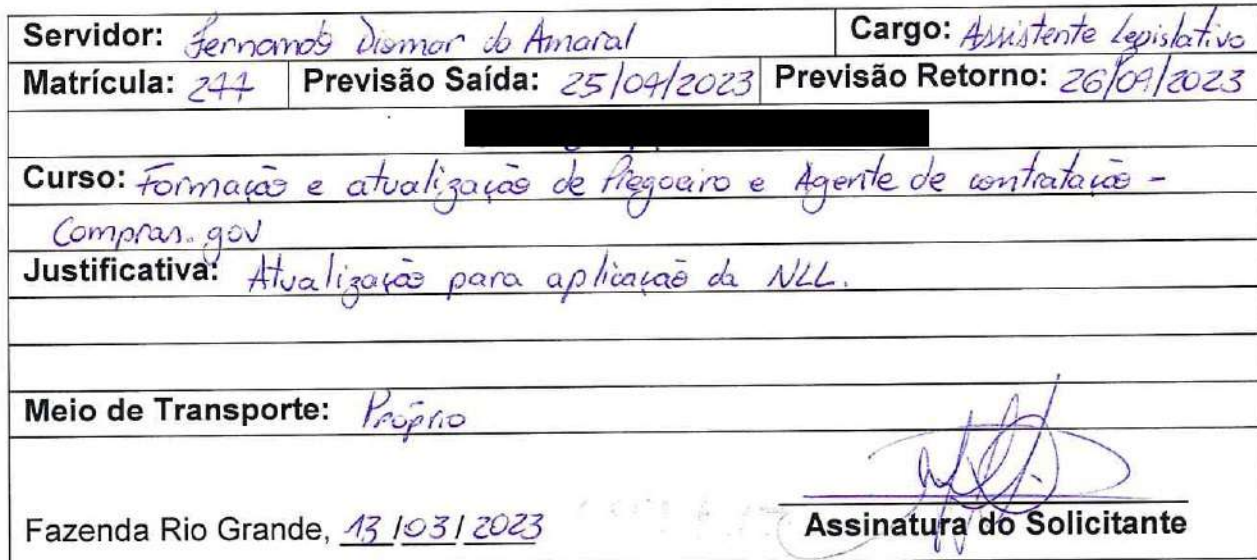 Servidor: Fernando Dismar do Amaral Cargo: Assistente Legislativo
Matrícula: 277 Previsão Saída: 25/04/2023 Previsão Retorno: 26/04/2023
Curso: Formação e atualização de Pregoeiro e Agente de contratação -
Compras.gov
Justificativa: Atualização para aplicação da NLL.
Meio de Transporte: Próprio
Fazenda Rio Grande, 13/03/2023 Assinatura do Solicitante